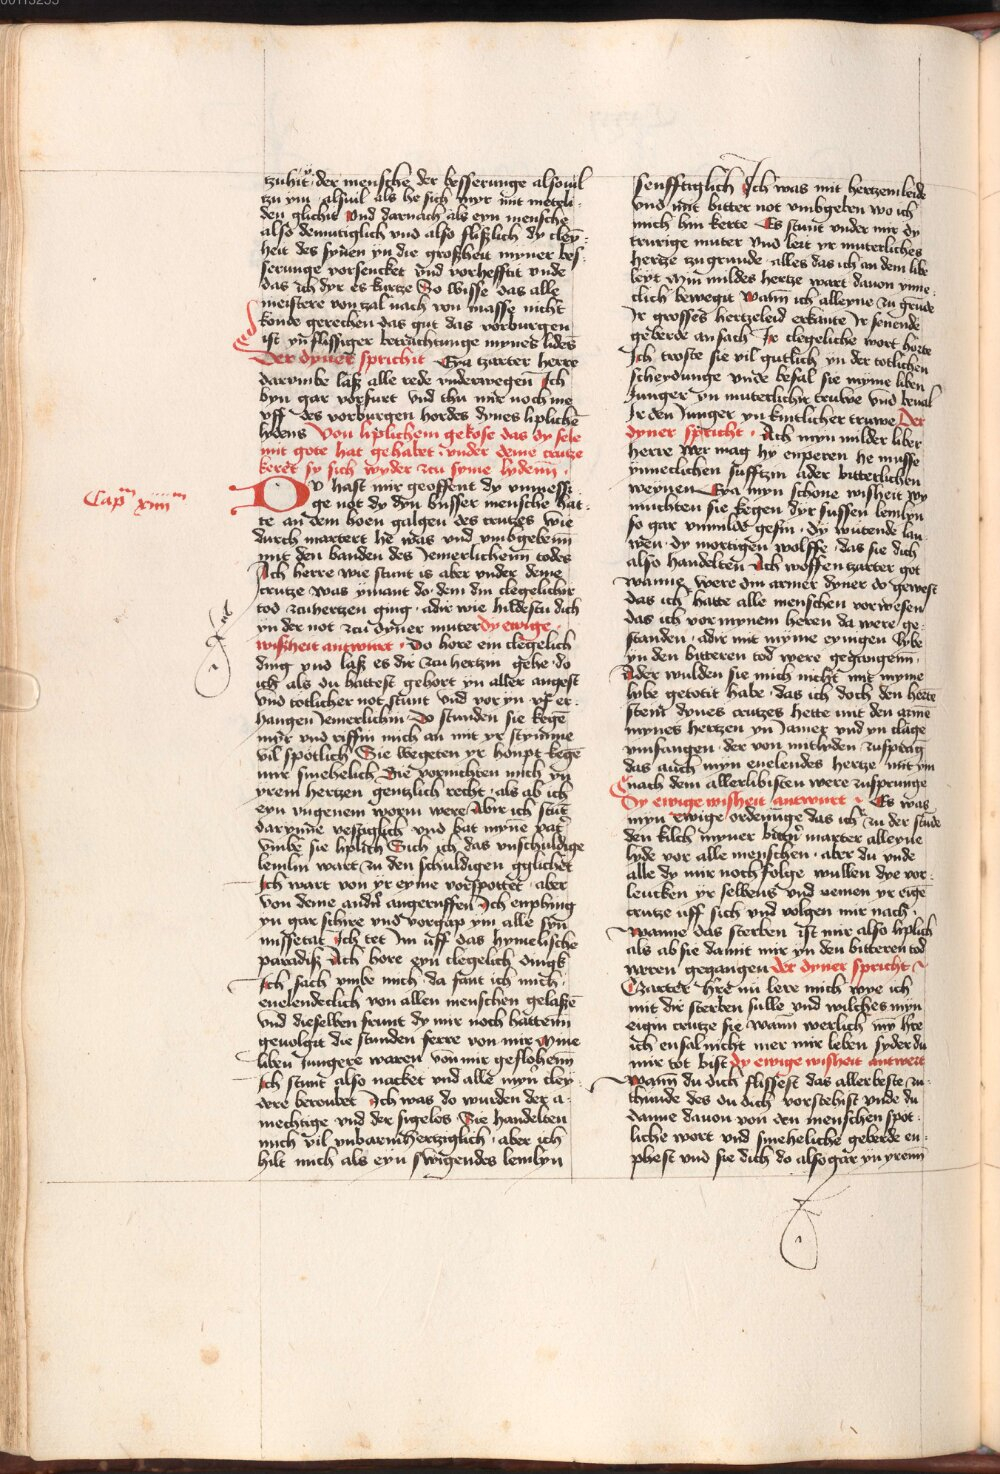 00113255
tzuhit · der mensche der besserunge alsouil
zu ym · alsuil als he sich myr mit meteli-
den glichit Vnd darnach als eyn mensche
also demutiglich vnd also flißlich dy cley-
heit des synen yn die großheit myner bes-
serunge vorsencket vnd vorhefftit vnde
das ich dyr es kurtze So wisse das alle
meistere von tzal nach von masse nicht
konde gerechen das gut das vorburgen
ist yn flissiger betrachtunge mynes lides
Der dyner sprichit Eya tzarter herre
darumbe laß alle rede vnderwegen Ich
byn gar verfurt vnd thu mir noch me
vff des vorburgen hordes dynes liplichē
lydens Von liplichem gekose das dy sele
mit gote hat gehabet vnder deme crutze
keret sy sich wyder zcu syme lydenn ·
Capᵐ xiiiiᵐ
DV hast mir geoffent dy vnmessi-
ge not dy dyn vsser mensche hat-
te an dem hoen galgen des crutzes wie
durch martert he was vnd vmbgebenn
mit den banden des Iemerlichenn todes
Ach herre wie stunt is aber vnder deme
crutze was ymant do · dem din clegelichir
tod zcuhertzen ging · adir wie hildestu dich
yn der not zcu dyner muter dy ewige
wißheit antwurt · Do hore ein clegelich
ding vnd laß es dir zcu hertzin gehe · do
ich als du hattest gehort yn aller angest
vnd totlicher not stunt vnd vor yn vf er-
hangen Iemerlichin · Do stunden sie kegē
mir vnd riffin mich an mit yr stymme
vil spotlich Sie wegeten yr houpt kegē
mir smehelich Sie vornichten mich yn
yrem hertzen gentzlich recht · als ab ich
eyn vngenem worm were Abir ich stūt
darynne vestiglich vnd bat myne vat̄
vmbe sie liplich Sich ich das vnschuldige
lemlin wart zu den schuldigen gglichet
Ich wart von yr eyme vorspottet · aber
von deme andn̄ angeruffen Ich enphing
yn gar schire vnd vorgap ym alle syn
missetat Ich tet Im vff das hymelische
paradiß Ach hore eyn clegelich dingk
Ich sach vmbe mich · da fant ich mich
enelendeclich von allen menschen gelassē
vnd dieselben frunt dy mir noch hattenn
geuolgit die stunden ferre von mir Myne
liben Iungere waren von mir geflohenn
Ich stunt also nacket vnd alle myn̄ cley-
dere beroubet Ich was do wurden der a-
mechtige vnd der sigelos Sie handelten
mich vil vnbarmhertziglich · aber ich
hilt mich als eyn swigendes lemlyn
senfftiglich Ich was mit hertzenleide
vnd mit bitter not vmbgeben wo ich
mich hin kerte Es stunt vnder mir dy
trurige muter vnd leit yr muterliches
hertze zu grunde · alles das ich an dem libe
leyt Myn mildes hertze wart dauon ynne-
clich bewegit Wann ich alleyne zu grūde
Ir grosses hertzeleid erkante Ir senende
geberde ansach Ir clegeliche wort horte
Ich troste sie vil gutlich yn der totlichen
scheydunge vnde befal sie myme liben
Iunger yn muterlichir truwe vnd beual
Ir den Iunger yn kintlicher truwe Der
dyner spricht · Ach myn milder liber
herre wer mag hy enperen he musse
ynneclichen sufftzin ader bitterlichen
weynen Eya myn schone wißheit wy
muchten sie kegen dyr sussen lemlyn
so gar vnmilde gesin · Dy wutende lau-
wen · dy mortigen wolffe · das sie dich
also handelten Ach woffen tzarter got
wanne were din armer dyner do gewest
das ich hatte alle menschen vorwesen
das ich vor mynem heren da were ge-
standen · adir mit myme eynigen lybe
yn den bitteren tod were gegangenn ·
Ader wulden sie mich nicht mit myme
lybe getotit habe · das ich doch den herte
stein dynes crutzes hette mit den arme
mynes hertzen yn Iamer vnd yn clage
vmfangen · der von mitlyden zuspräg
das auch myn enelendes hertze mit ym
nach dem allerlibisten were zusprunge
Dy ewige wisheit antwurt · Es was
myn ewige ordenūge das ich zu der stūde
den kilch myner bittn̄ marter alleyne
lyde vor alle menschen · aber du vnde
alle dy mir noch folge wullen dye vor-
leucken yr selbens vnd nemen yr eigē
crutze uff sich vnd volgen mir nach ·
Wanne das sterben ist mir also liplich
als ab sie damit mir yn den bitteren tod
weren gegangen der dyner spricht
Czarter hre nu lere mich wye ich
mit dir sterben sulle vnd wilches myn
eigin crutze sie Wann werlich mȳ hre
ich ensal nicht mer mir leben syder du
mir tot bist dy ewige wisheit antwert
Wann du dich flissest das allerbeste zu-
thunde des du dich vorstehist vnde du
danne dauon von den menschen spot-
liche wort vnd smeheliche geberde en-
phest vnd sie dich do also gar yn yrenn